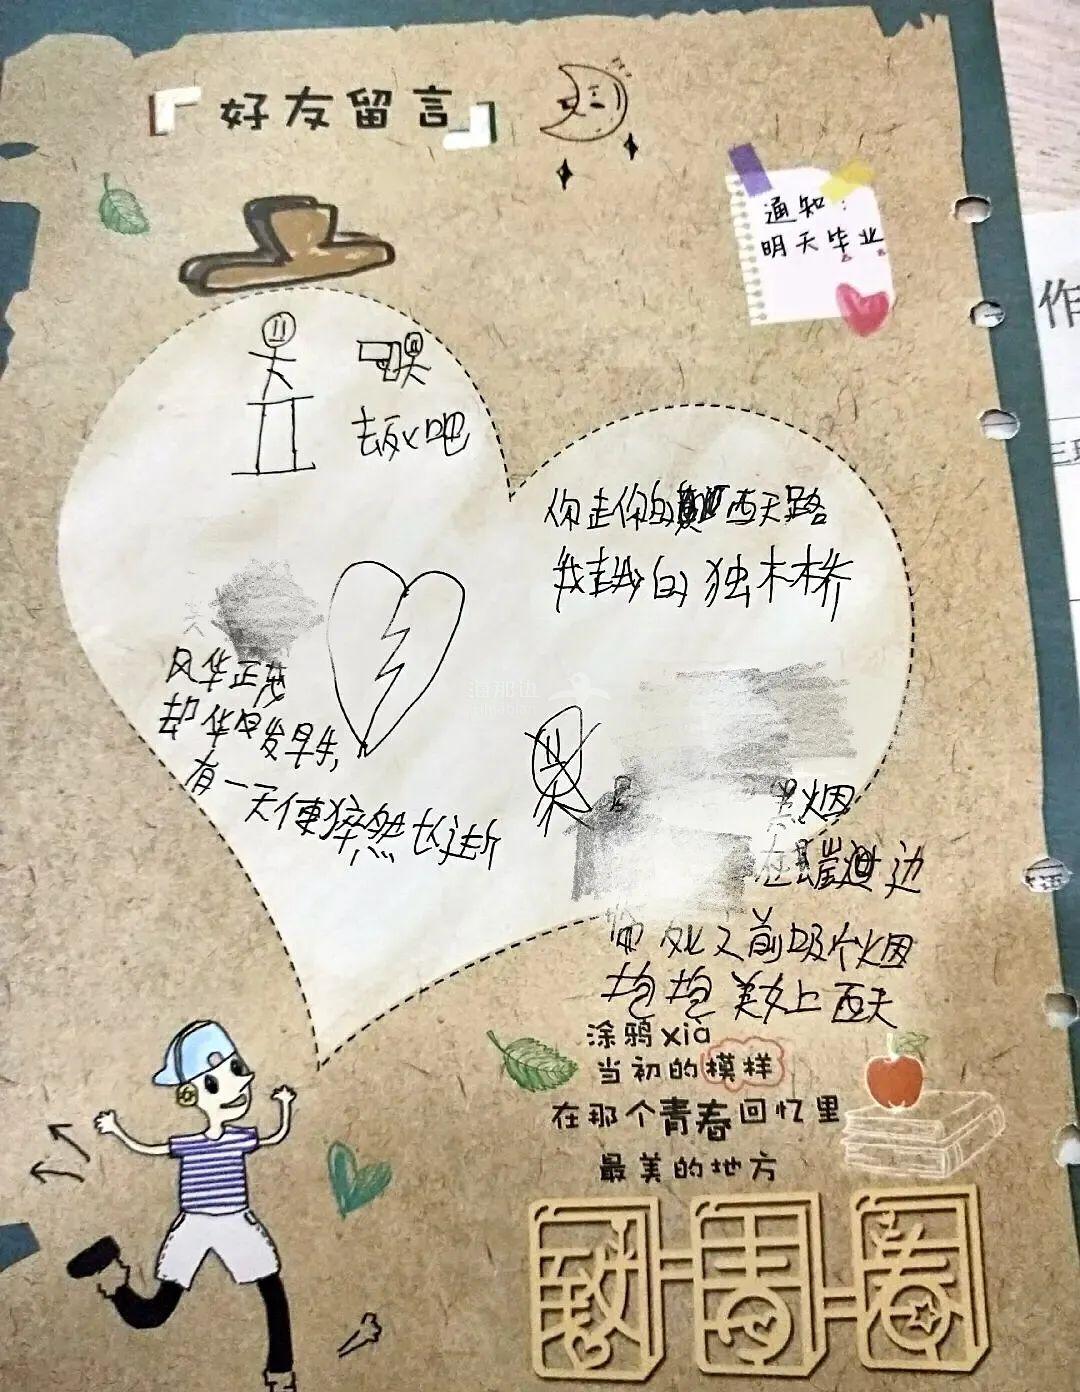 好友留言
通知：
明天毕业
去死吧
你走你的西天路
我走我的独木桥
风华正茂
却华发早失,
有一天便猝然长逝
烟
在 边
处之前吸个烟
美女上西天
涂鸦xià
当初的模样
在那个青春回忆里
最美的地方
致青春
作